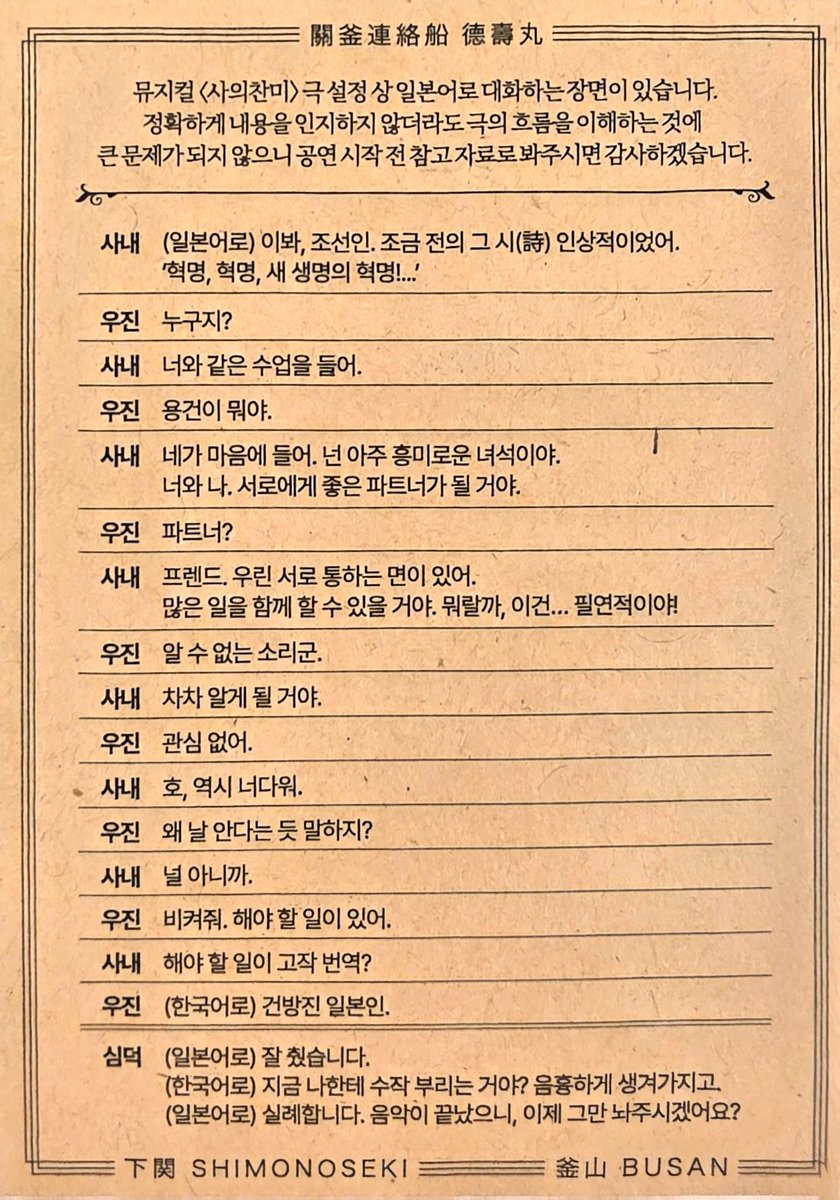 關釜連絡船 德壽丸
뮤지컬 〈사의찬미〉 극 설정 상 일본어로 대화하는 장면이 있습니다.
정확하게 내용을 인지하지 않더라도 극의 흐름을 이해하는 것에
큰 문제가 되지 않으니 공연 시작 전 참고 자료로 봐주시면 감사하겠습니다.
사내 (일본어로) 이봐, 조선인. 조금 전의 그 시(詩) 인상적이었어.
'혁명, 혁명, 새 생명의 혁명!...'
우진 누구지?
사내 너와 같은 수업을 들어.
우진 용건이 뭐야.
사내 네가 마음에 들어. 넌 아주 흥미로운 녀석이야.
너와 나. 서로에게 좋은 파트너가 될 거야.
우진 파트너?
사내 프렌드. 우린 서로 통하는 면이 있어.
많은 일을 함께 할 수 있을 거야. 뭐랄까, 이건... 필연적이야!
우진 알 수 없는 소리군.
사내 차차 알게 될 거야.
우진 관심 없어.
사내 호, 역시 너다워.
우진 왜 날 안다는 듯 말하지?
사내 널 아니까.
우진 비켜줘. 해야 할 일이 있어.
사내 해야 할 일이 고작 번역?
우진 (한국어로) 건방진 일본인.
심덕 (일본어로) 잘 췄습니다.
(한국어로) 지금 나한테 수작 부리는 거야? 음흉하게 생겨가지고.
(일본어로) 실례합니다. 음악이 끝났으니, 이제 그만 놔주시겠어요?
下関 SHIMONOSEKI 釜山 BUSAN